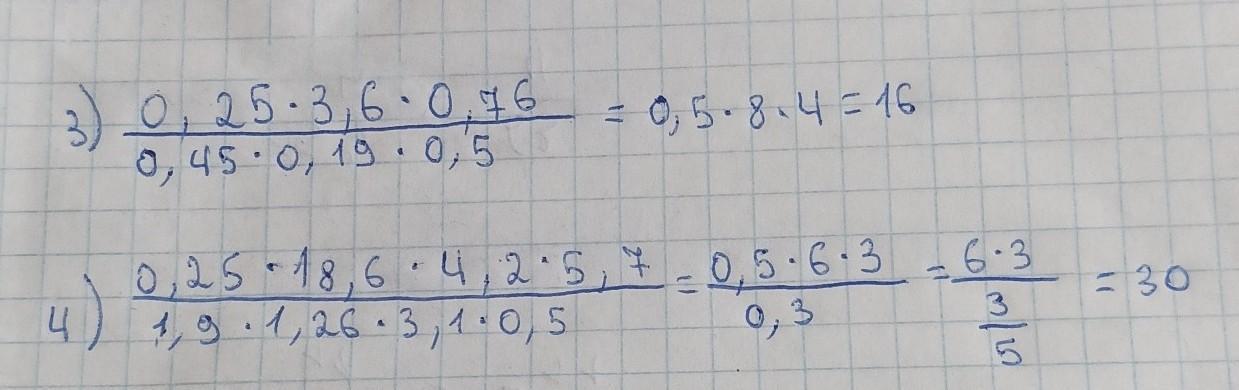 3) (0,25·3,6·0,76)/(0,45·0,19·0,5) = 0,5·8·4=16
4) (0,25·18,6·4,2·5,7)/(1,9·1,26·3,1·0,5) = (0,5·6·3)/(0,3) = (6·3)/(3/5) = 30